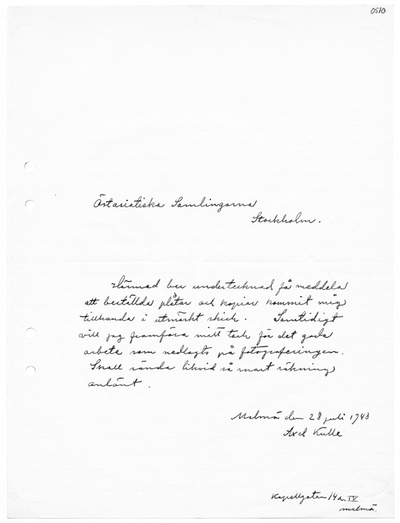 0570
Östasiatiska Samlingarna
Stockholm.
Härmed ber undertecknad få meddela
att beställda plåtar och kopior kommit mig
tillhanda i utmärkt skick. Samtidigt
vill jag framföra mitt tack för det goda
arbete som nedlagts på fotograferingen.
Skall sända likvid så snart räkning
anlänt.
Malmö den 28 juli 1943
Axel Kulle
Kapellgatan 14a. IV
Malmö.